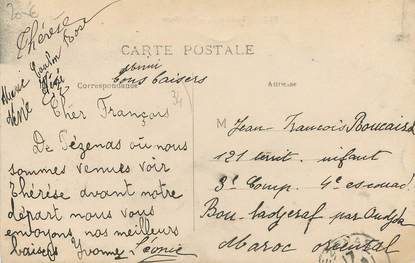 Thérèse
CARTE POSTALE
Correspondance
Adresse
tous baisers
Cher François
De Pézenas où nous
sommes venues voir
Thérèse avant notre
départ nous vous
envoyons nos meilleurs
baisers Yvonne, Léonie
M Jean François Boucaird
121 territ. infant
3e Comp. 4e escouad.
par Oudjda
Maroc oriental